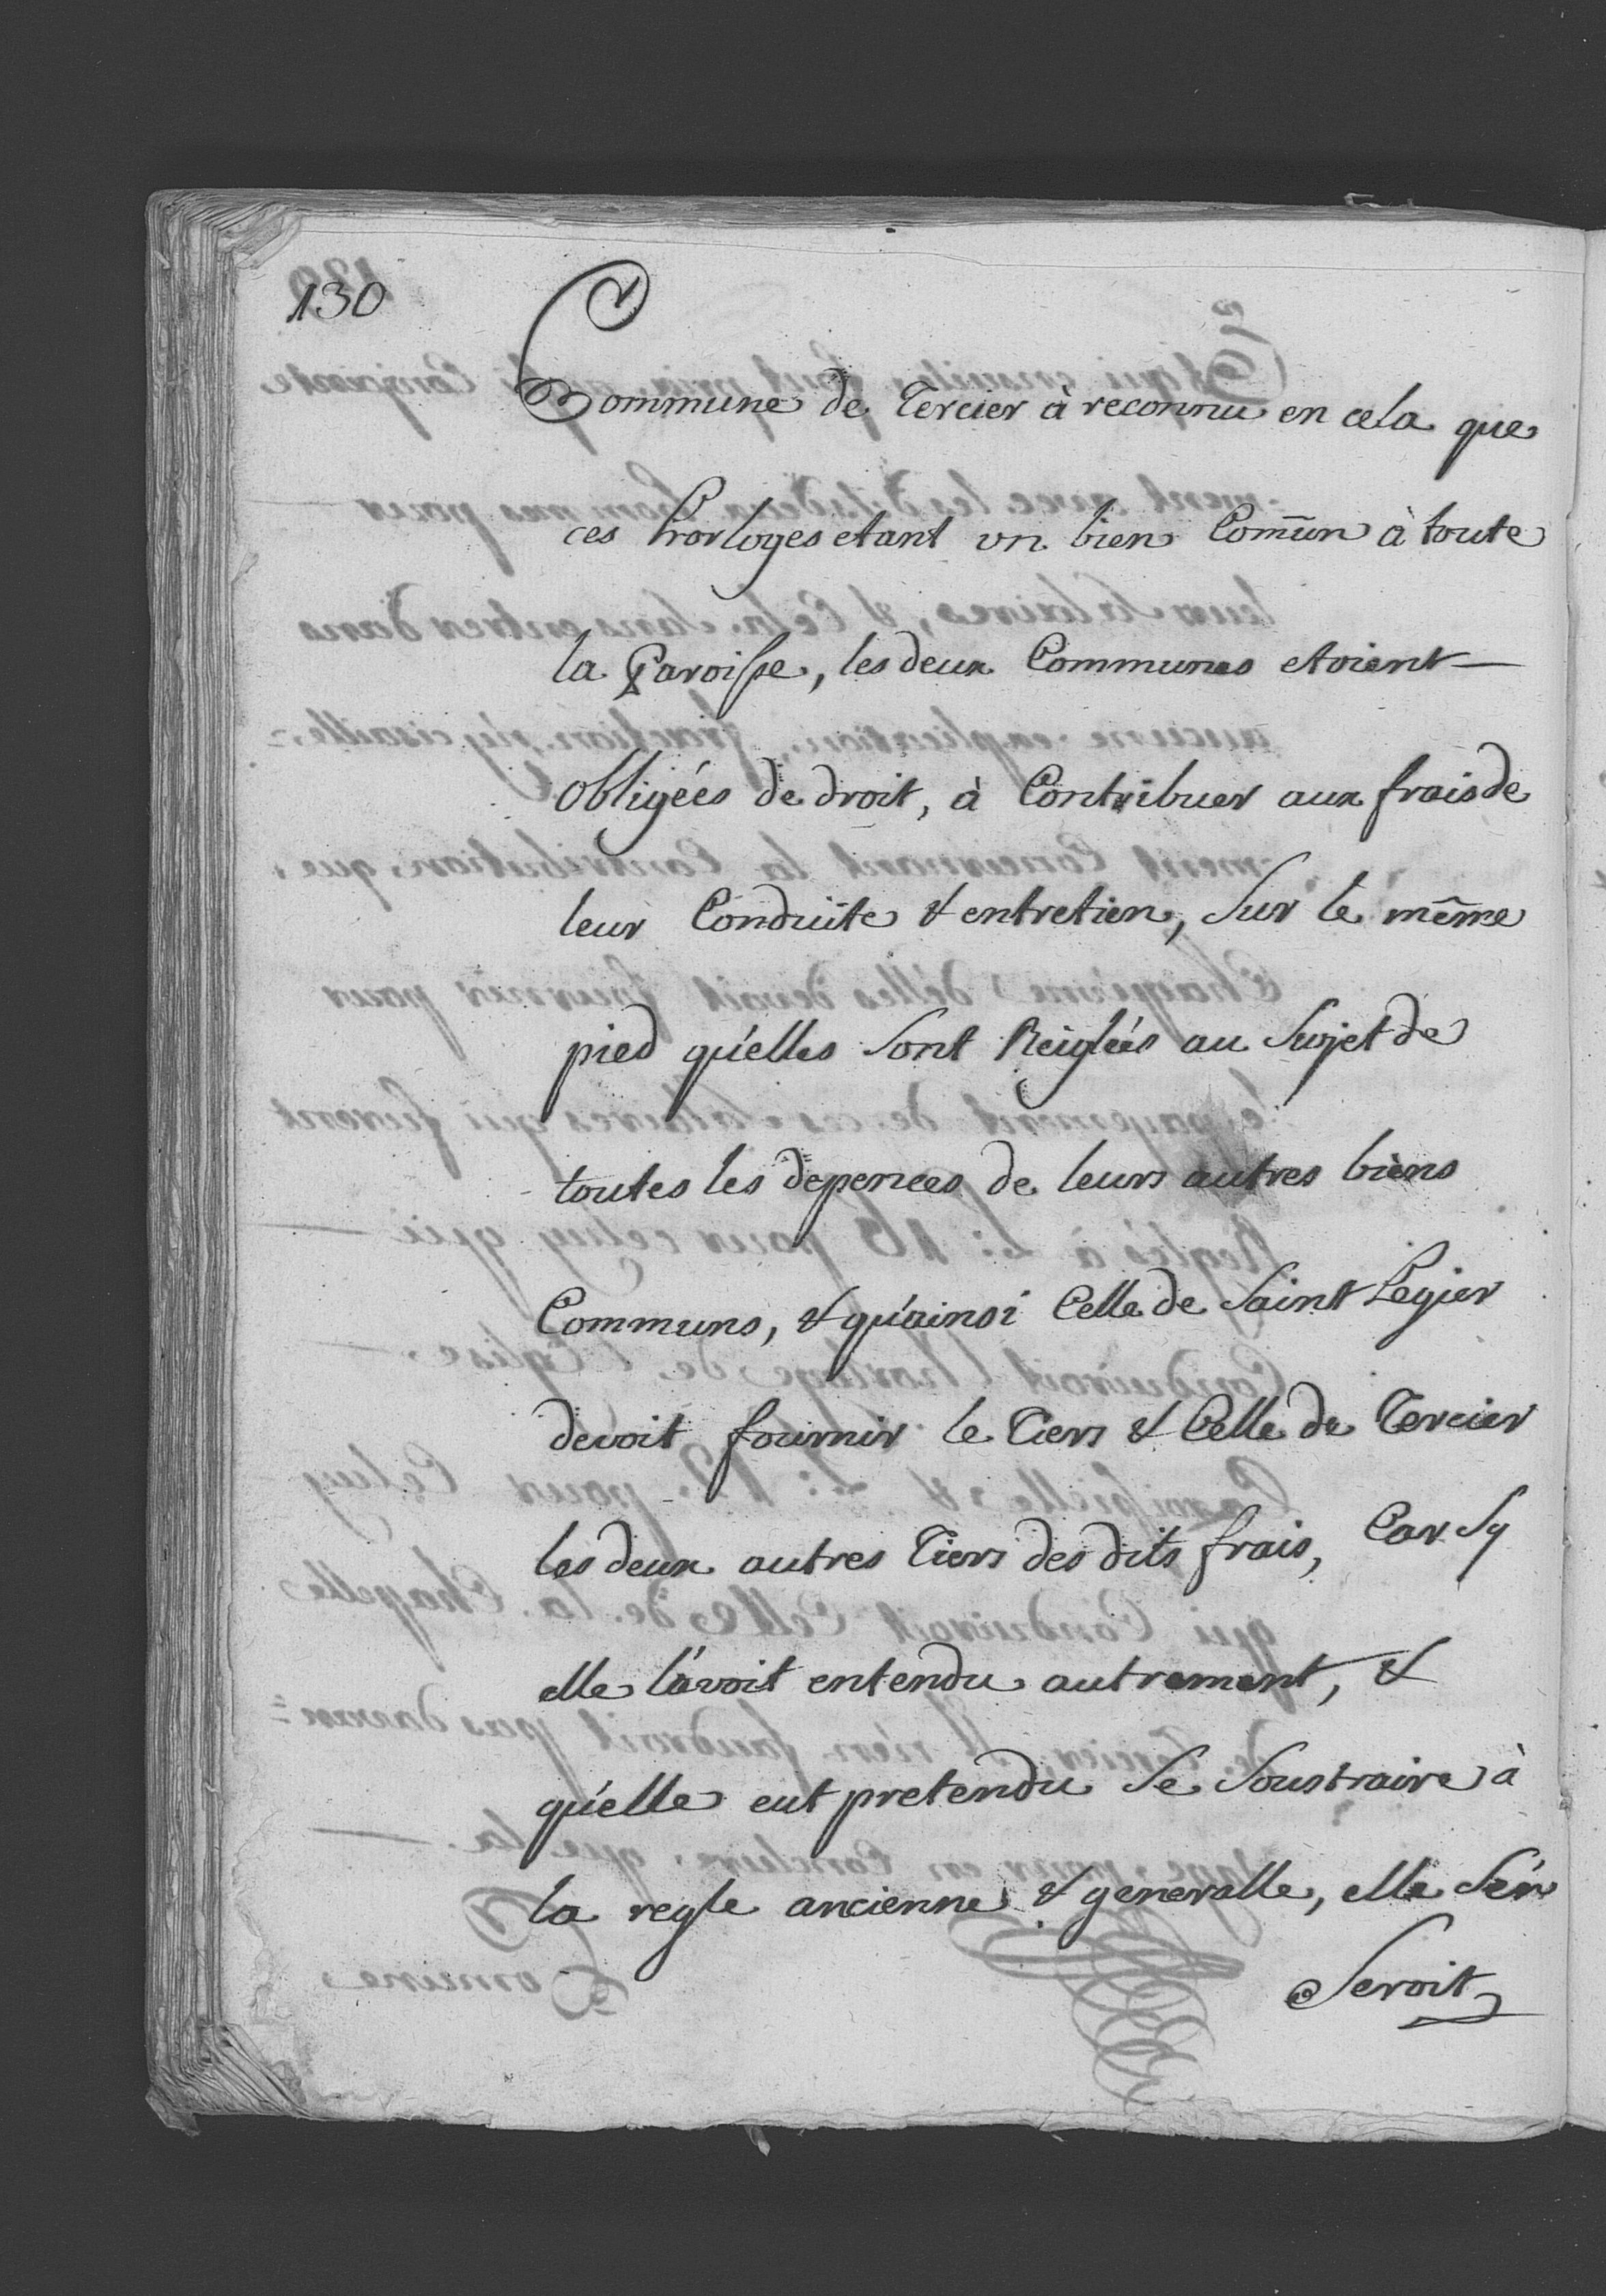 130
Commune de Tercier à reconnu en cela que
ces horloges etant un bien Com̄un à toute
la Paroisse, les deux Communes etoient —
obligées de droit, à Contribuer aux frais de
leur Conduite & entretien, Sur le même
pied qu'elles Sont Reiglées au Sujet de
toutes les depences de leurs autres biens
Communs, & qu'ainsi Celle de Saint Legier
devoit fournir le Tiers & Celle de Tercier
les deux autres Tiers des dits frais, Car Sy
elle l'avoit entendu autrement, &
qu'elle eut pretendu Se Soustraire à
la regle ancienne & generalle, elle S'en
Seroit